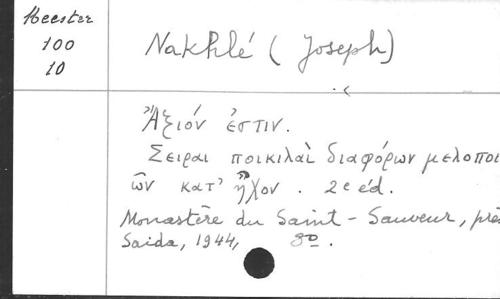 Heester
100
10
Nakhlé (Joseph)
Ἄξιόν ἐστιν.
Σειραι ποικιλαὶ διαφόρων μελοποι
ῶν κατ' ἦχον. 2e éd.
Monastère du Saint-Sauveur, près
Saida, 1944, 8o.